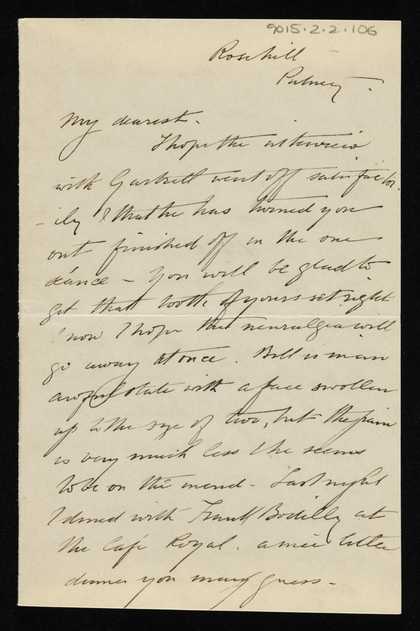 9015.2.2.106
Rosehill
Putney.
My dearest.
I hope the interview
with Gaskell went off satisfactor-
-ily & that he has turned you
out finished off in the one
séance - You will be glad to
get that tooth of yours set right
& now I hope the neuralgia will
go away at once. Bill is in an
awful state with a face swollen
up to the size of two, but the pain
is very much less & he seems
to be on the mend - Last night
I dined with Frank Bodilly at
the Café Royal. a nice little
dinner you may guess -